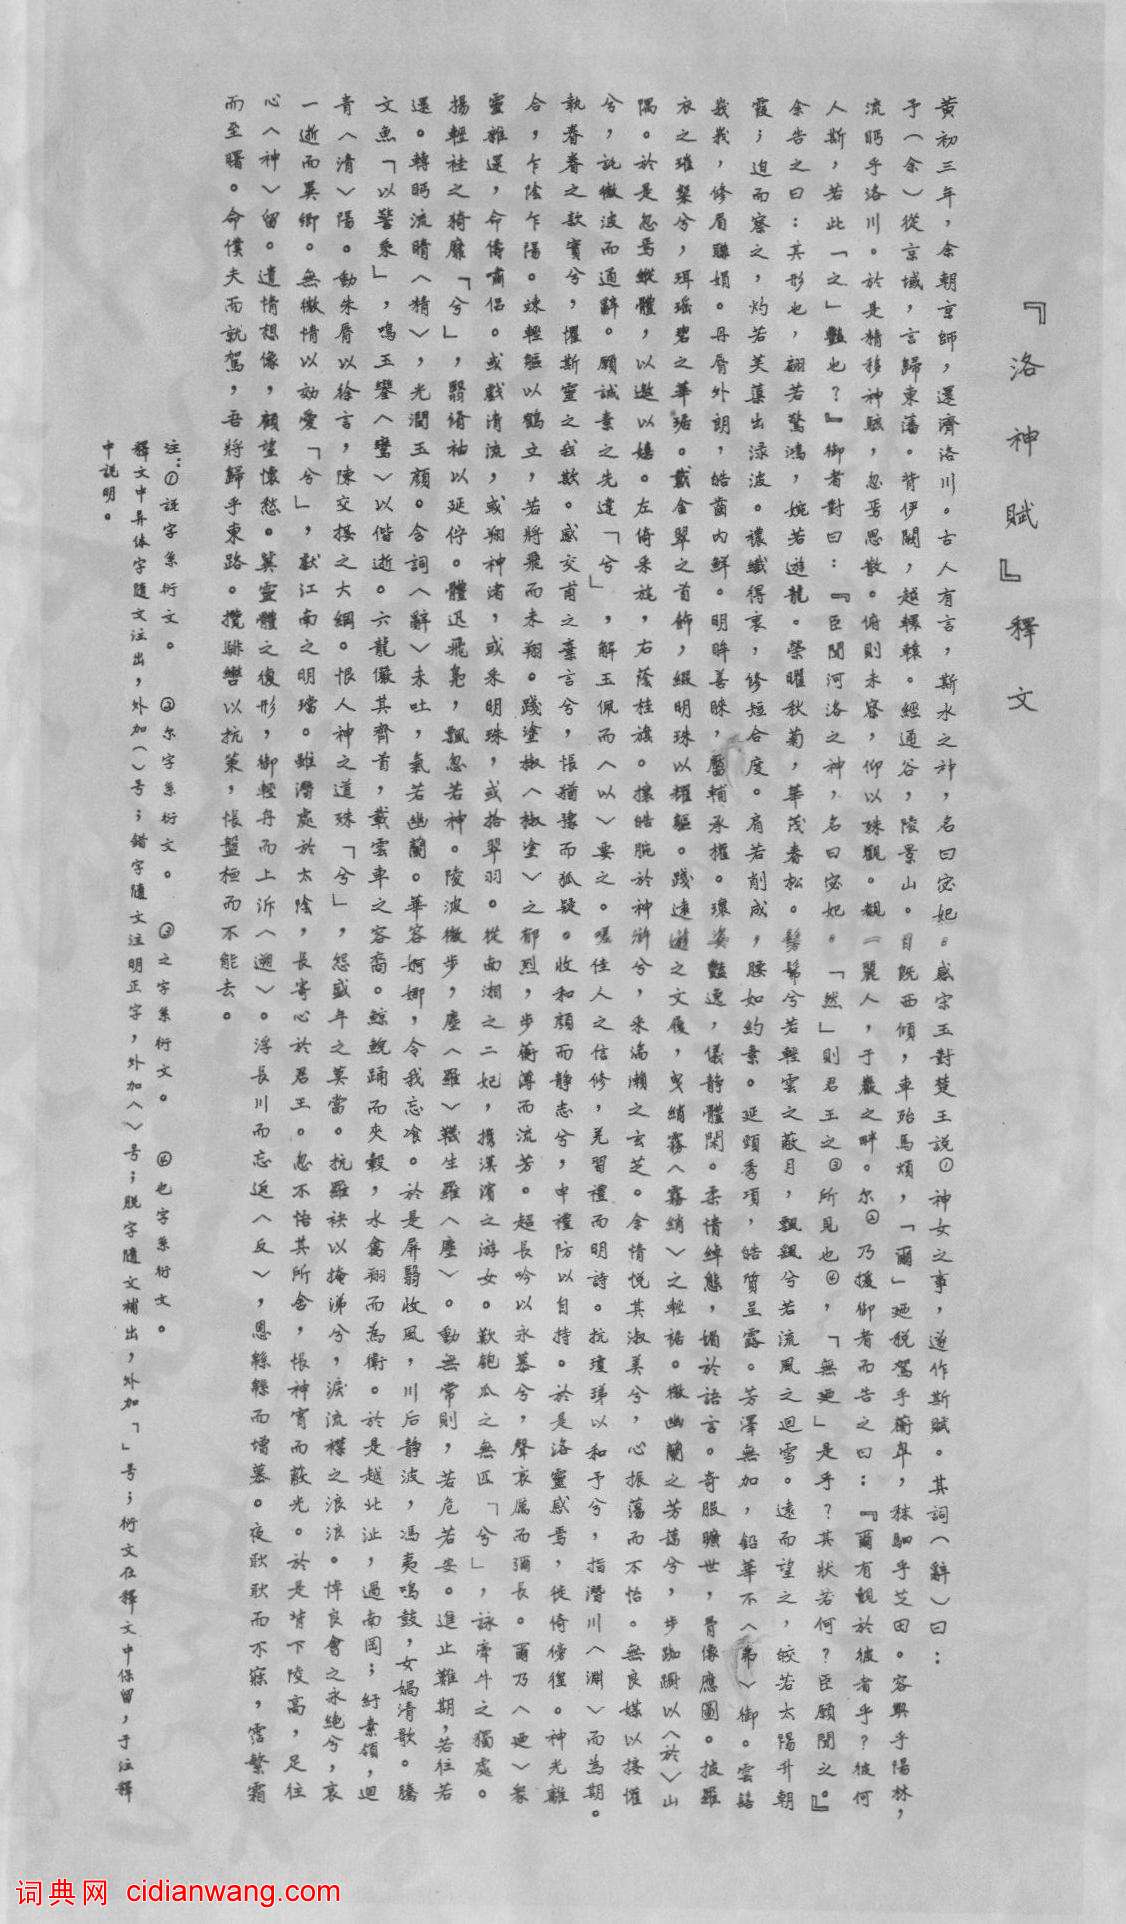 『洛神賦』釋文
黃初三年，余朝京師，還濟洛川。古人有言，斯水之神，名曰宓妃。感宋玉對楚王說①神女之事，遂作斯賦。其詞（辭）曰：
予（余）從京域，言歸東藩。背伊闕，越轘轅。經通谷，陵景山。日既西傾，車殆馬煩，「爾」迺稅駕乎蘅皐，秣駟乎芝田。容與乎陽林，
流眄乎洛川。於是精移神駭，忽焉思散。俯則未察，仰以殊觀。覩一麗人，于巖之畔。尔②乃援御者而告之曰：『爾有覿於彼者乎？彼何
人斯，若此「之」豔也？』御者對曰：『臣聞河洛之神，名曰宓妃。「然」則君王之③所見也④，「無迺」是乎？其狀若何？臣願聞之。』
余告之曰：其形也，翩若驚鴻，婉若遊龍。榮曜秋菊，華茂春松。髣髴兮若輕雲之蔽月，飄颻兮若流風之迴雪。遠而望之，皎若太陽升朝
霞；迫而察之，灼若芙蕖出淥波。襛纖得衷，修短合度。肩若削成，腰如約素。延頸秀項，皓質呈露。芳澤無加，鉛華不〈弗〉御。雲髻
峩峩，修眉聯娟。丹脣外朗，皓齒內鮮。明眸善睞，靨輔承權。瓌姿豔逸，儀静體閑。柔情綽態，媚於語言。奇服曠世，骨像應圖。披羅
衣之璀粲兮，珥瑶碧之華琚。戴金翠之首飾，綴明珠以耀軀。踐遠遊之文履，曳綃霧〈霧綃〉之輕裾。微幽蘭之芳藹兮，步踟躕以〈於〉山
隅。於是忽焉縱體，以遨以嬉。左倚采旄，右蔭桂旗。攘皓腕於神滸兮，采湍瀨之玄芝。余情悅其淑美兮，心振蕩而不怡。無良媒以接懽
兮，託微波而通辭。願誠素之先達「兮」，解玉佩而〈以〉要之。嗟佳人之信修，羌習禮而明詩。抗瓊珶以和予兮，指潛川〈淵〉而為期。
執眷眷之款實兮，懼斯靈之我欺。感交甫之棄言兮，悵猶豫而狐疑。收和顏而静志兮，申禮防以自持。於是洛靈感焉，徙倚徬徨。神光離
合，乍陰乍陽。竦輕軀以鶴立，若將飛而未翔。踐塗椒〈椒塗〉之郁烈，步蘅薄而流芳。超長吟以永慕兮，聲哀厲而彌長。爾乃〈迺〉衆
靈雜遝，命儔嘯侶。或戲清流，或翔神渚，或采明珠，或拾翠羽。從南湘之二妃，攜漢濱之游女。歎匏瓜之無匹「兮」，詠牽牛之獨處。
揚輕袿之猗靡「兮」，翳脩袖以延佇。體迅飛鳧，飄忽若神。陵波微步，塵〈羅〉韈生羅〈塵〉。動無常則，若危若安。進止難期，若往若
還。轉眄流睛〈精〉，光潤玉顏。含詞〈辭〉未吐，氣若幽蘭。華容婀娜，令我忘飡。於是屏翳收風，川后静波，馮夷鳴鼓，女媧清歌。騰
文魚「以警乘」，鳴玉鑾〈鸞〉以偕逝。六龍儼其齊首，載雲車之容裔。鯨鯢踊而夾轂，水禽翔而為衛。於是越北沚，過南岡；紆素領，迴
青〈清〉陽。動朱脣以徐言，陳交接之大綱。恨人神之道殊「兮」，怨盛年之莫當。抗羅袂以掩涕兮，淚流襟之浪浪。悼良會之永絕兮，哀
一逝而異鄉。無微情以効愛「兮」，獻江南之明璫。雖潛處於太陰，長寄心於君王。忽不悟其所舍，悵神宵而蔽光。於是背下陵高，足往
心〈神〉留。遺情想像，顧望懷愁。冀靈體之復形，御輕舟而上泝〈遡〉。浮長川而忘返〈反〉，思緜緜而增慕。夜耿耿而不寐，霑繁霜
而至曙。命僕夫而就駕，吾將歸乎東路。攬騑轡以抗策，悵盤桓而不能去。
注：①說字系衍文。 ②尔字系衍文。 ③之字系衍文。 ④也字系衍文。
釋文中异体字隨文注出，外加（）号；錯字隨文注明正字，外加〈〉号；脫字隨文補出，外加「」号；衍文在釋文中保留，于注釋
中說明。
词典网 cidianwang.com